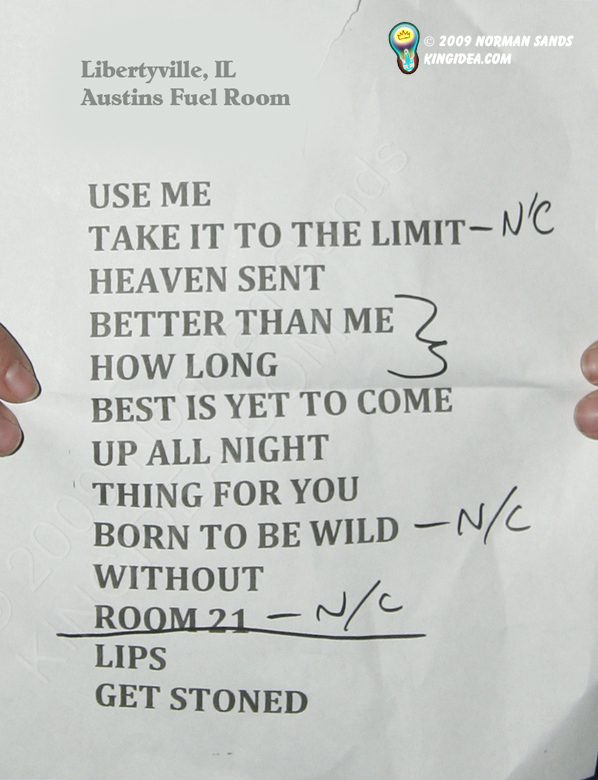 © 2009 NORMAN SANDS
KINGIDEA.COM
Libertyville, IL
Austins Fuel Room
USE ME
TAKE IT TO THE LIMIT – N/C
HEAVEN SENT
BETTER THAN ME
HOW LONG
BEST IS YET TO COME
UP ALL NIGHT
THING FOR YOU
BORN TO BE WILD – N/C
WITHOUT
ROOM 21 – N/C
LIPS
GET STONED